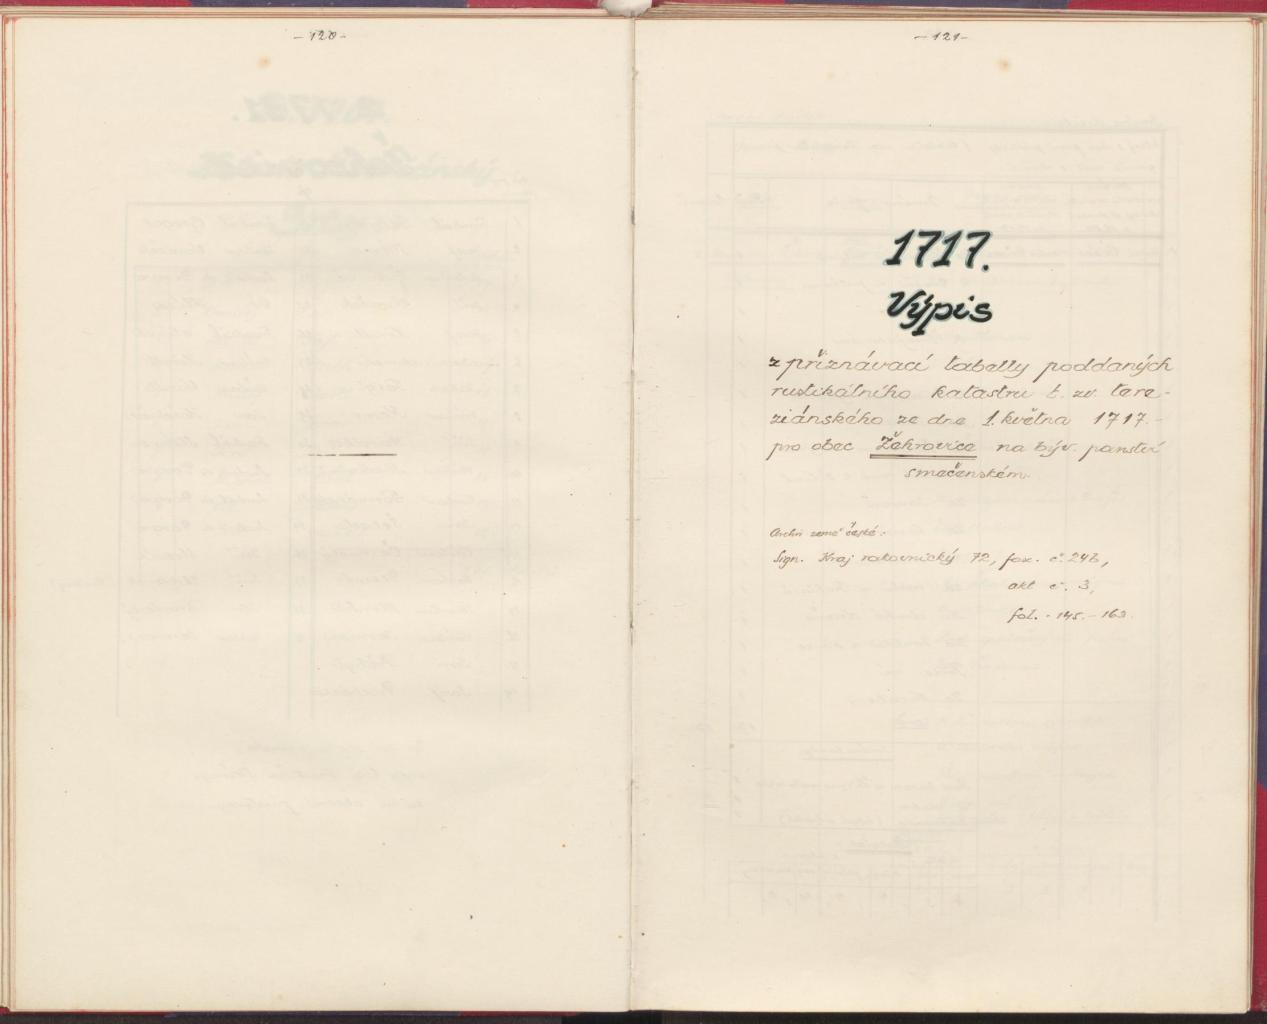 - 120 -
- 121 -
1717.
Výpis
z přiznávací tabelly poddaných
rustikálního katastru t. zv. tere-
ziánského ze dne 1. května 1717.-
pro obec Žehrovice na býv. panství
smečenském.
Archiv země české:
Sign. Kraj rakovnický 72, fax. č. 246,
akt č. 3,
fol. - 145. - 163.